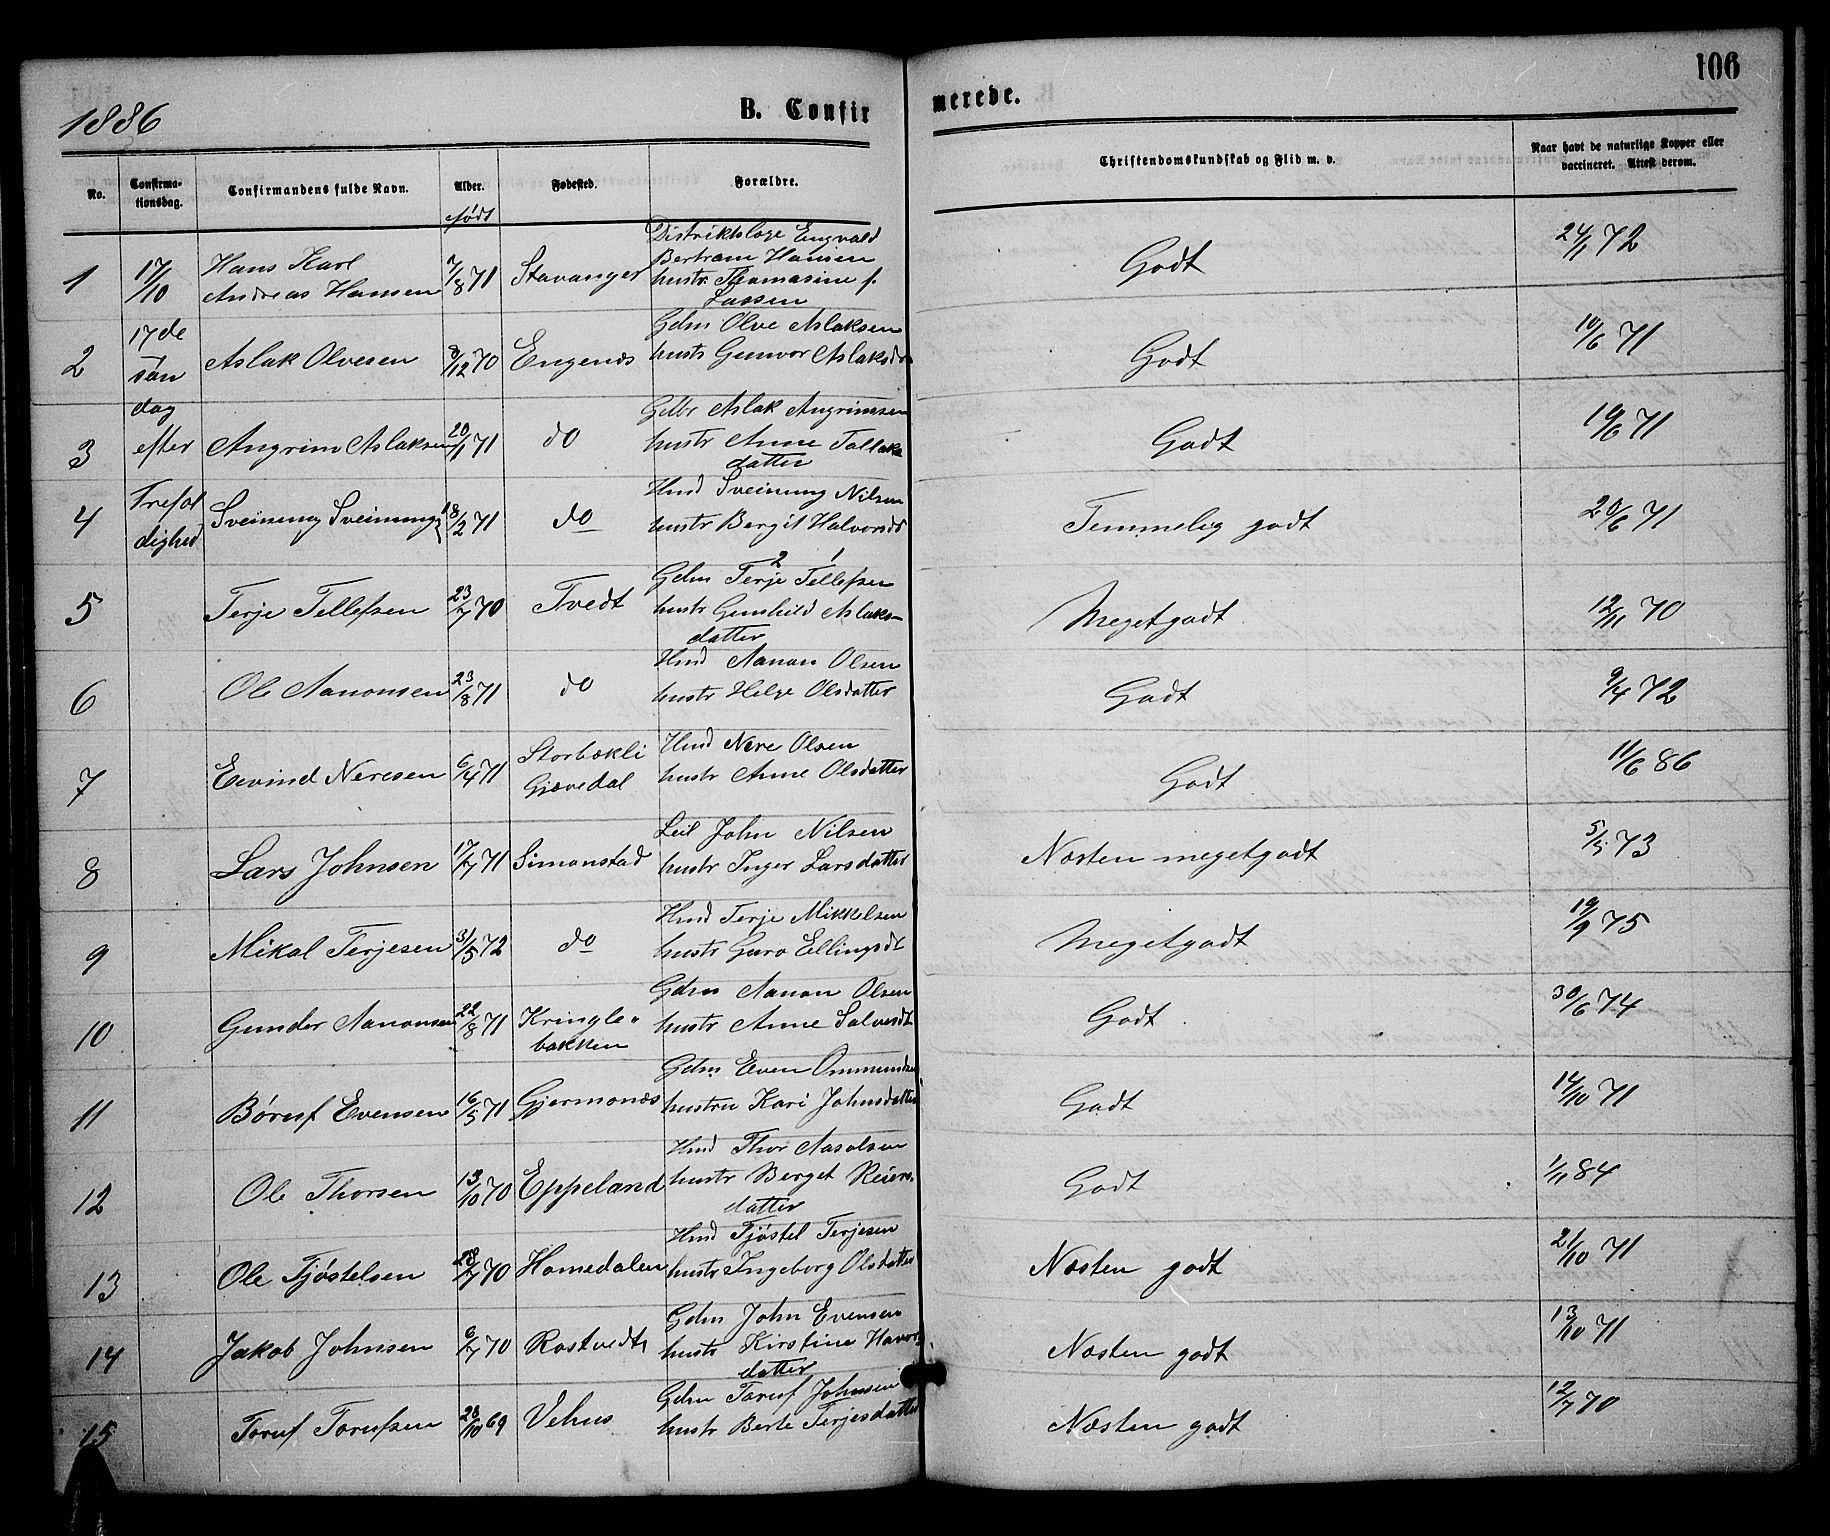 1886
B. Confirmerede.
106
No.
Confirma-
tionsdag.
Confirmandens fulde Navn.
Alder.
født
Fødested.
Forældre.
Christendomskundskab og Flid m. v.
Naar havt de naturlige Kopper eller
vaccineret. Attest derom.
1 17/10 Hans Karl Andreas Hansen 7/8 71 Stavanger Distriktslæge Engvald Bertram Hansen hustr. Thomasine f. Lassen Godt 24/1 72
2 17de søn Aslak Olvesen 8/12 70 Engenæs Gdm Olve Aslaksen hustr Gunvor Aslaksdt Godt 10/6 71
3 dag efter Angrim Aslaksen 20/1 71 do Aslak Angrimsen hustr Anne Tallaks datter Godt 10/6 71
4 Trefol dighed Sveinung Sveinungs 18/2 71 do Hmd Sveinung Nilsen hustr Bergit Halvorsdt Temmelig godt 20/6 71
5 Terje Tellefsen 23/7 70 Tvedt Gdm Terje 2 Tellefsen 1 hustr Gunhild Aslaks- datter Megetgodt 12/11 70
6 Ole Aanonsen 23/8 71 do Hmd Aanon Olsen hustr Helge Olsdatter Godt 9/4 72
7 Eivind Neresen 6/4 71 Storbækli Gjøvedal Hmd Nere Olsen hustr Anne Olsdatter Godt 11/6 86
8 Lars Johnsen 17/7 71 Simonstad Leil John Nilsen hustr Inger Larsdatter Næsten megetgodt 5/5 73
9 Mikal Terjesen 31/5 72 do Hmd Terje Mikkelsen hustr Guro Ellingsdt Megetgodt 19/9 75
10 Gunder Aanonsen 22/8 71 Kringle- bakken Gdm Aanon Olsen hustr Anne Salvesdt Godt 30/6 74
11 Børuf Evensen 16/5 71 Gjermonæs Gdm Even Ommundsen hustru Kari Johnsdatter Godt 14/10 71
12 Ole Thorsen 13/10 70 Eppeland Hmd Thor Aasolsen hustr Berget Reiers- datter Godt 1/11 84
13 Ole Tjøstelsen 28/7 70 Homedalen Hmd Tjøstel Terjesen hustr Ingeborg Olsdatter Næsten godt 21/10 71
14 Jakob Johnsen 6/7 70 Rostvedt Gdm John Evensen hustr Kirstine Havors- datter Næsten godt 13/10 71
15 Toruf Torufsen 28/10 69 Vehus Gdm Toruf Johnsen hustr Berte Terjesdatter Næsten godt 12/7 70